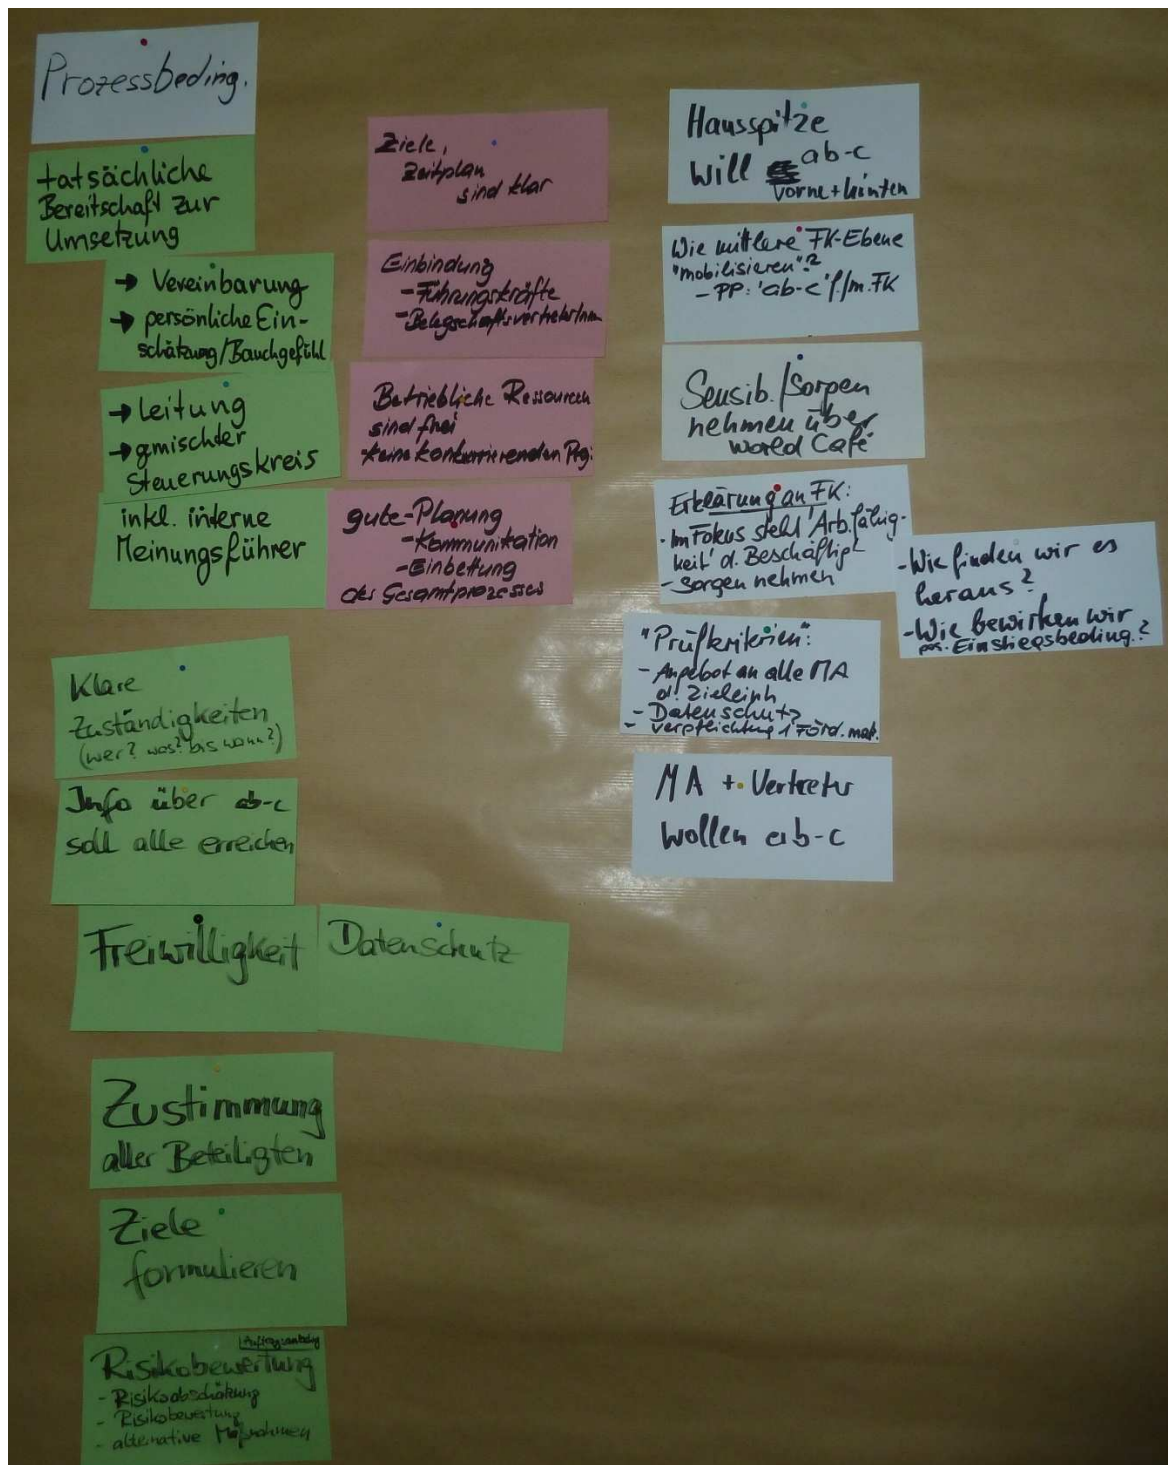 Prozessbeding.
tatsächliche
Bereitschaft zur
Umsetzung
→ Vereinbarung
→ persönliche Ein-
schätzung/Bauchgefühl
→ Leitung
→ gmischter
Steuerungskreis
inkl. interne
Meinungsführer
Klare
Zuständigkeiten
(wer? was? bis wann?)
Info über ab-c
soll alle erreichen
Freiwilligkeit
Datenschutz
Zustimmung
aller Beteiligten
Ziele
formulieren
Risikobewertung
- Risikoabschätzung
- Risikobewertung
- alternative Maßnahmen
Ziele,
Zeitplan
sind klar
Einbindung
- Führungskräfte
- BelegschaftsvertreterInnen
Betriebliche Ressourcen
sind frei
- keine konkurrierenden Proj.
gute - Planung
- Kommunikation
- Einbettung
des Gesamtprozesses
Hausspitze
will ab-c
vorne + hinten
Wie mittlere FK-Ebene
"mobilisieren"?
- PP: 'ab-c' f/m. FK
Sensib./Sorgen
nehmen über
World Café
Erklärung an FK:
- Im Fokus steht 'Arb.fähig-
keit' d. Beschäftigt
- Sorgen nehmen
- Wie finden wir es
heraus?
- Wie bewirken wir
pos. Einstiegsbeding.?
"Prüfkriterien":
- Angebot an alle MA
d. Zieleinh
- Datenschutz
- Verpflichtung 1 Förd. maß.
MA + Vertreter
wollen ab-c